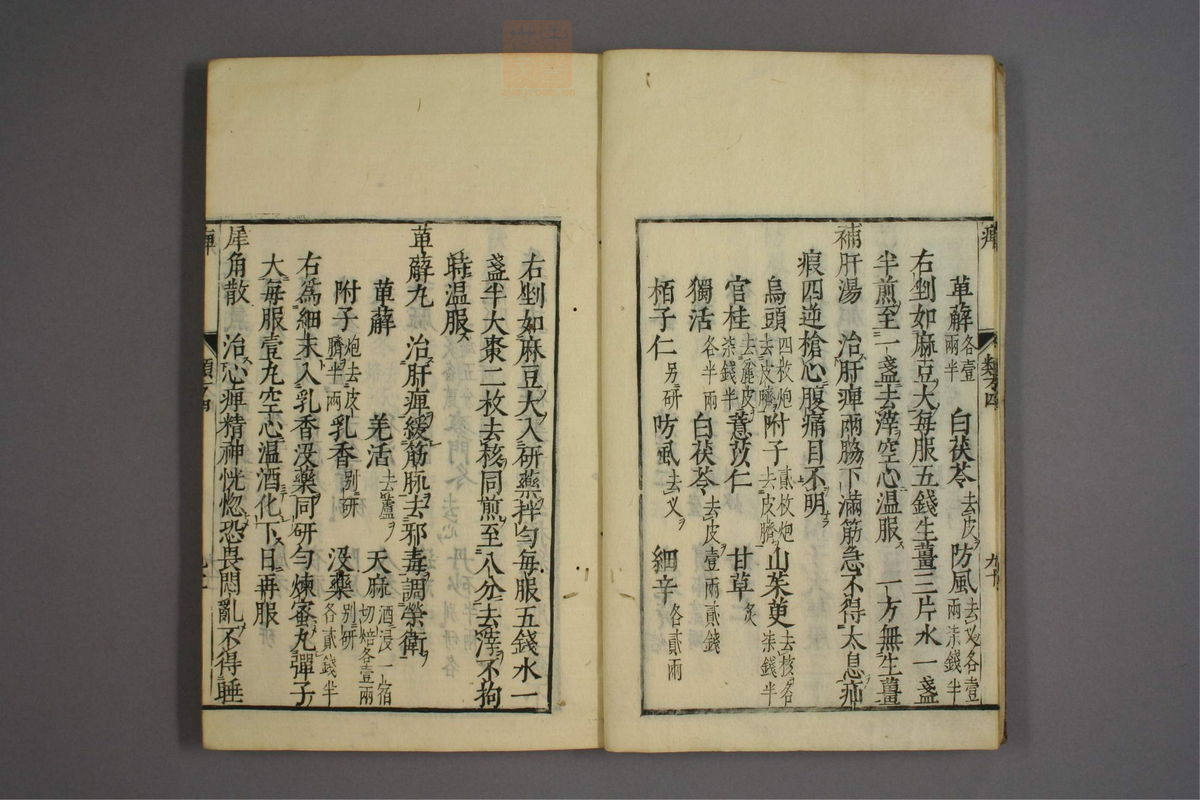 萆薢各壹兩半 白茯苓去皮 防風去叉各壹兩柒錢半
右剉如麻豆大每服五錢生薑三片水一盞
半煎至一盞去滓空心溫服 一方無生薑
補肝湯 治肝痺兩脇下滿筋急不得太息疝
瘕四逆搶心腹痛目不明
烏頭四枚炮去皮臍 附子貳枚炮去皮臍 山茱萸去核各柒錢半
官桂去麤皮柒錢半 薏苡仁 甘草炙
獨活各半兩 白茯苓去皮壹兩貳錢
栢子仁另研 防風去叉 細辛各貳兩
右剉如麻豆大入研藥拌勻每服五錢水一
盞半大棗二枚去核同煎至八分去滓不拘
時溫服
萆薢丸 治肝痺緩筋脉去邪毒調榮衛
萆薢 羌活去蘆 天麻酒浸一宿切焙各壹兩
附子炮去皮臍半兩 乳香別研 沒藥別研各貳錢半
右爲細末入乳香沒藥同研勻煉蜜丸彈子
大每服壹丸空心溫酒化下日再服
犀角散 治心痺精神恍惚恐畏悶亂不得睡